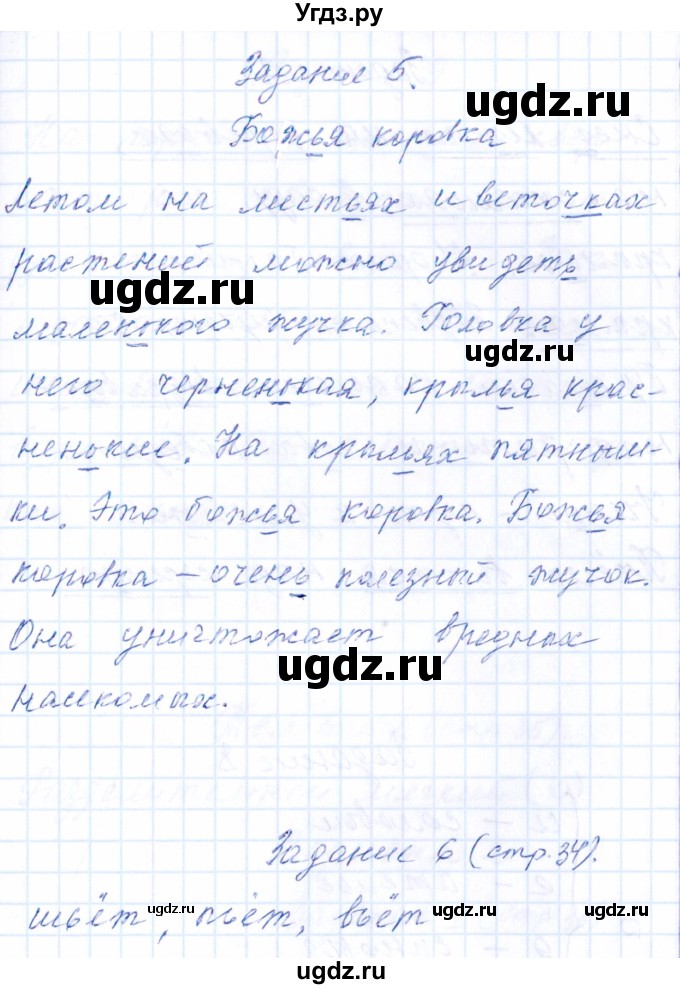 Угдз.ру
Задание 5.
Божья коровка
Летом на листьях и веточках
растений можно увидеть
ugdz.ru
ugdz.ru
маленького жучка. Головка у
него черненькая, крылья крас-
ненькие. На крыльях пятныш-
ки. Это божья коровка. Божья
ugdz.ru
ugdz.ru
коровка – очень полезный жучок.
Она уничтожает вредных
ugdz.ru
насекомых.
ugdz.ru
Задание 6 (стр. 34).
шьёт, пьёт, вьёт
ugdz.ru
ugdz.ru
ugdz.ru
ugdz.ru